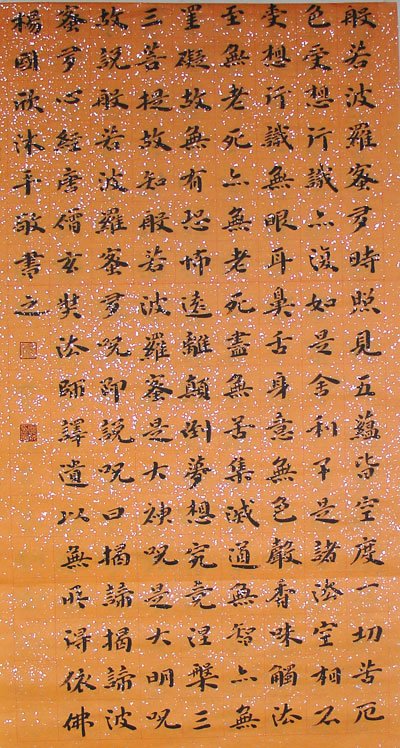 般若波羅蜜多時照見五蘊皆空度一切苦厄
色受想行識亦復如是舍利子是諸法空相不
受想行識無眼耳鼻舌身意無色聲香味觸法
至無老死亦無老死盡無苦集滅道無智亦無
罣礙故無有恐怖遠離顛倒夢想究竟涅槃三
三菩提故知般若波羅蜜是大神呪是大明呪
故說般若波羅蜜多呪即說呪曰揭諦揭諦波
蜜多心經唐僧玄奘法師譯遺以無所得依佛
楊國欣沐手敬書之